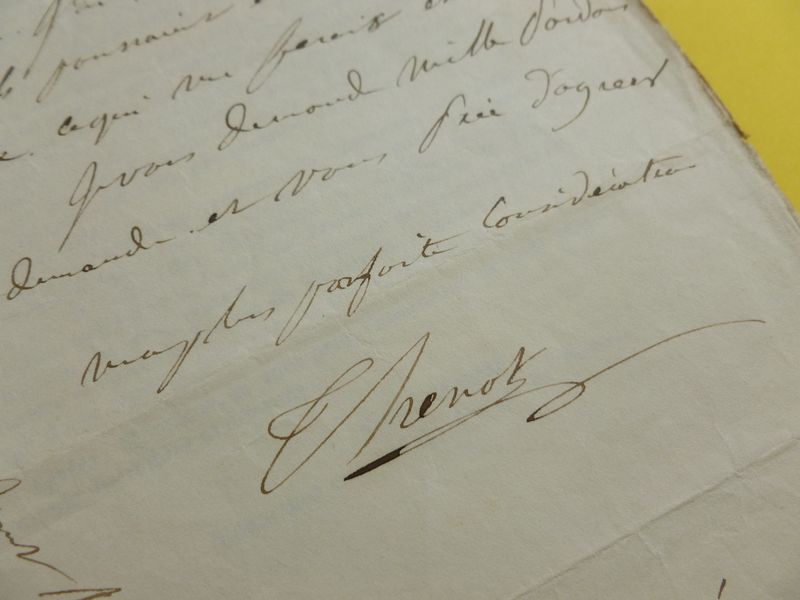 pourraient
ce qui me ferait
Je vous demande mille pardons
demande et vous prie d'agréer
ma plus parfaite considération
Thenot